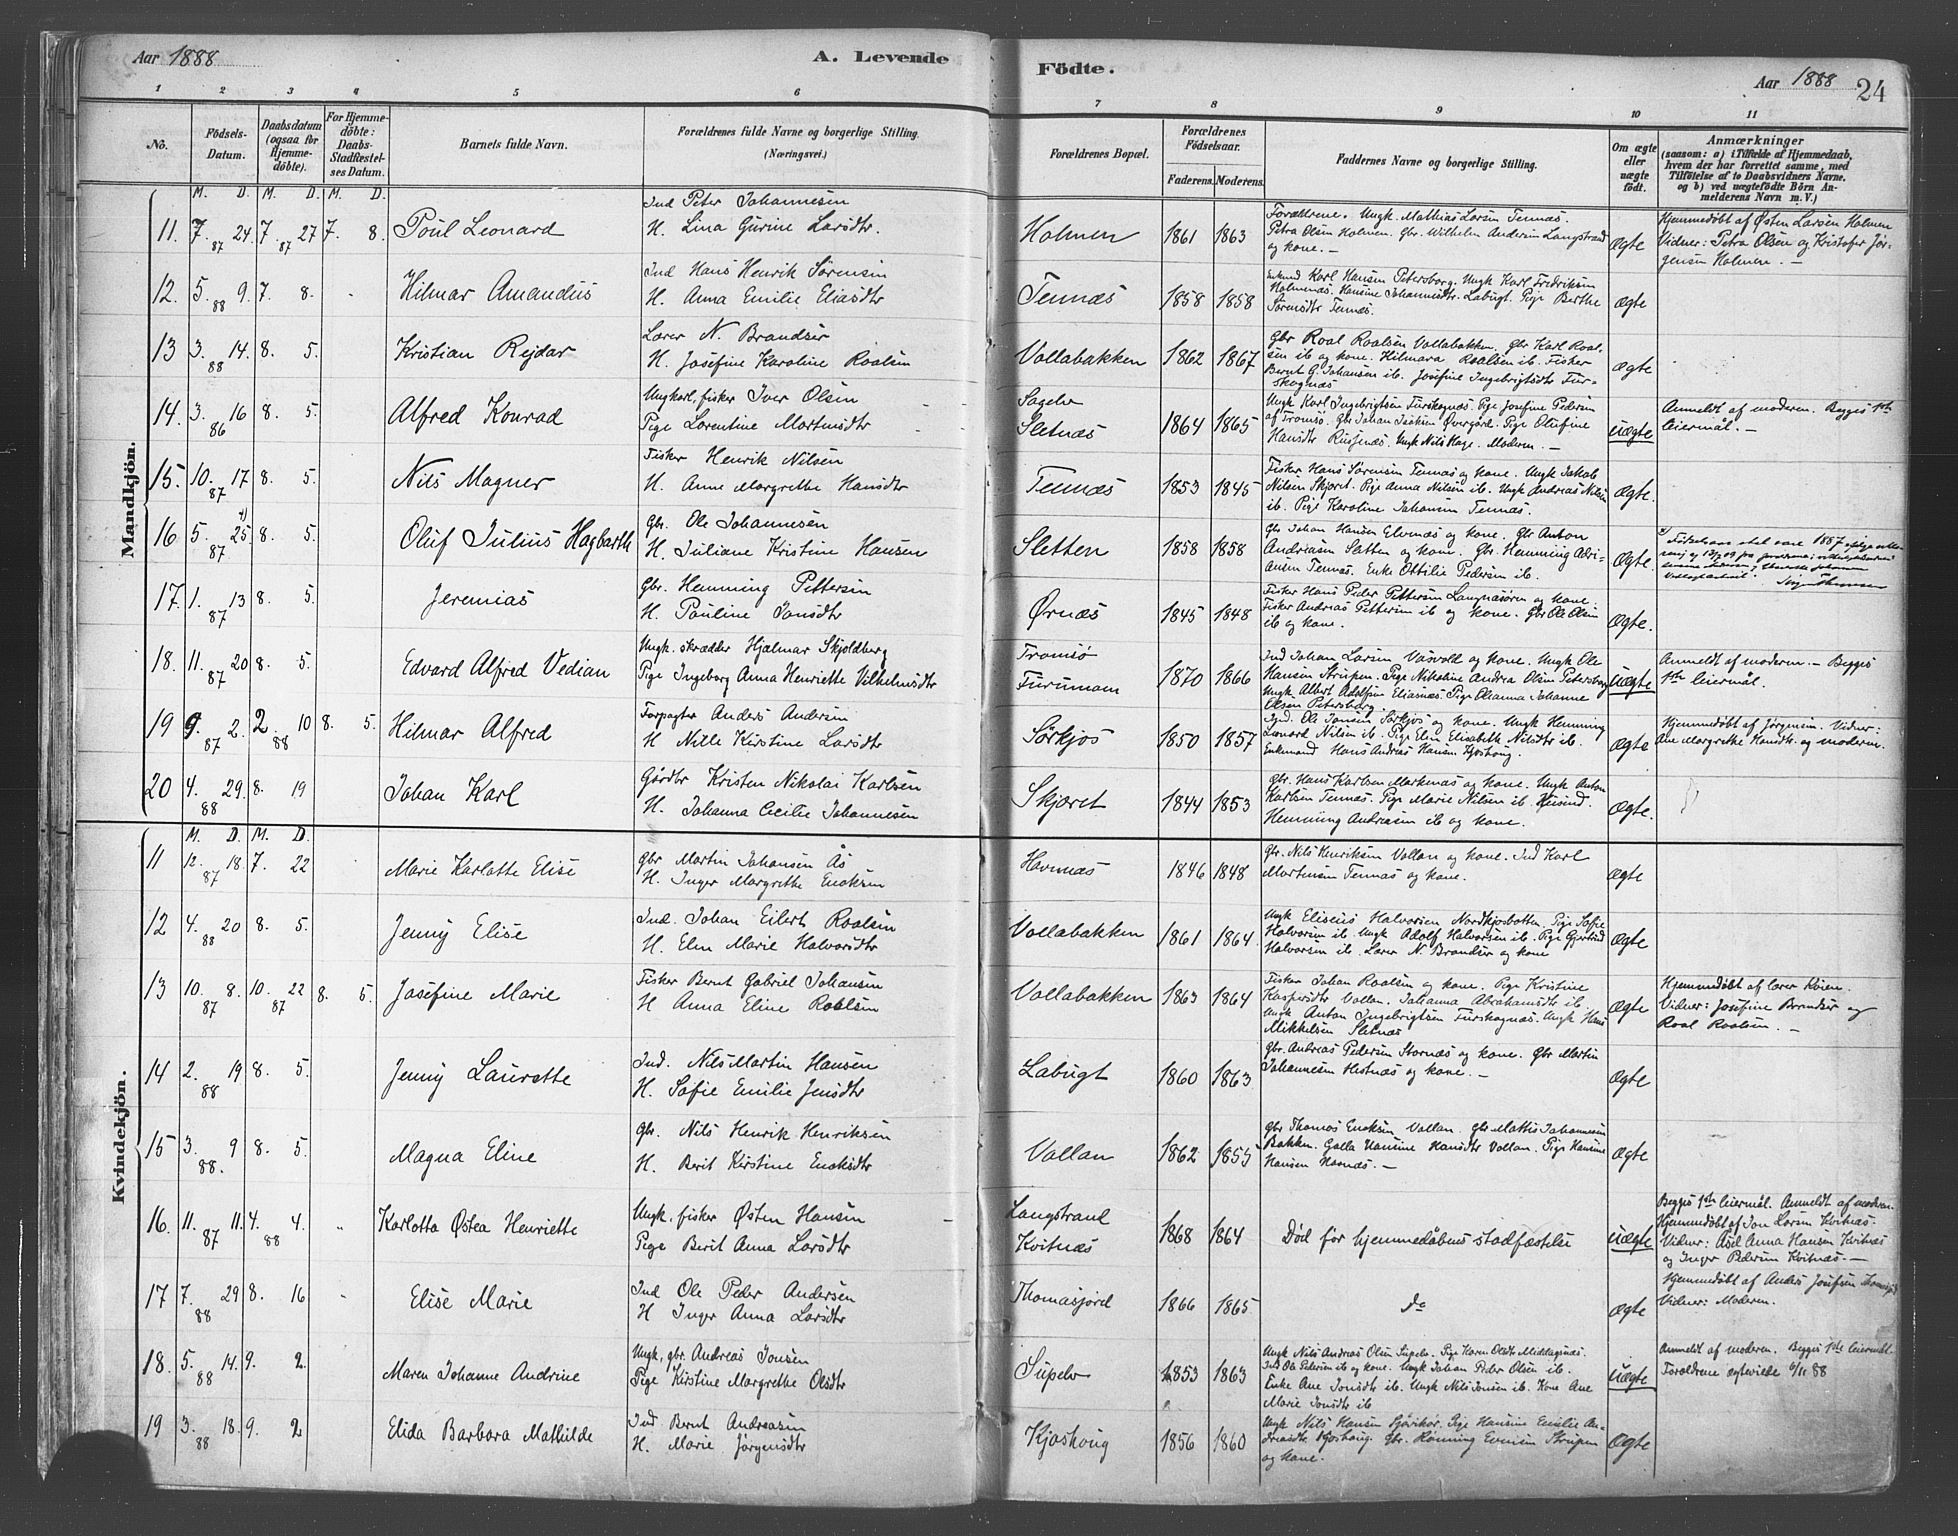 Aar 1888
A. Levende
Födte.
Aar 1888
24
1 2 3 4 5 6 7 8 9 10 11
No.
Födsels-
Datum.
Daabsdatum
(ogsaa for
Hjemme-
döbte).
For Hjemme-
döbte:
Daabs-
Stadfæstel-
ses Datum.
Barnets fulde Navn.
Forældrenes fulde Navne og borgerlige Stilling.
(Næringsvei.)
Forældrenes Bopæl.
Forældrenes
Födselsaar.
Faderens. Moderens.
Faddernes Navne og borgerlige Stilling.
Om ægte
eller
uægte
födt.
Anmærkninger
(saasom: a) i Tilfælde af Hjemmedaab,
hvem der har forrettet samme, med
Tilföielse af to Daabsvidners Navne,
og b) ved uægtefödte Börn An-
melderens Navn m. V.)
M. D. M. D. M. D.
Mandkjön.
11. 7. 24. 7. 27 7. 8.
87 87
Poul Leonard
Ind Peter Johannesen
H. Lina Gurine Larsdtr.
Holmen
1861 1863
Forældrene. Ungk. Mathias Larsen Tennæs.
Petra Olsen Holmen. Gbr. Wilhelm Andersen Langstrand
og kone. —
Ægte
Hjemmedøbt af Østen Larsen Holmen
Vidner: Petra Olsen og Kristofer Jör-
gensen Holmen. —
12. 5. 9. 7. 8.
88
Hilmar Amandus
Ind Hans Henrik Sørensen
H. Anna Emilie Eliasdtr
Tennæs
1858 1858
Enkmd Karl Hansen Petersborg. Ungk Karl Fredriksen
Holmenæs. Hansine Johannesdtr. Labugt. Pige Berthe
Sörensdtr Tennæs.
Ægte
13 3. 14. 8. 5.
88
Kristian Rejdar
Lærer N. Brandser
H. Josefine Karoline Roalsen
Vollabakken
1862 1867
Gbr Roal Roalsen Vollabakken. Gbr Karl Roal-
sen ib og kone. Hilmara Roalsen ib. Fisker
Bernt G. Johansen ib. Josefine Ingebrigtsdtr Fur-
skognæs
Ægte
14. 3. 16 8. 5.
86
Alfred Konrad
Ungkarl, fisker Iver Olsen
Pige Lorentine Martinsdtr
Sagelv
Sletnæs
1864 1865
Ungk Karl Ingebrigtsen Furskognæs. Pige Josefine Pedersen
af Tromsö. Gbr Johan Isaksen Övergård. Pige Olufine
Hansdtr Russenæs. Ungk Nils Hage. Moderen. —
uægte
Anmeldt af moderen. Begges 1ste
leiermål. —
15. 10. 17 8. 5.
87
Nils Magner
Fisker Henrik Nilsen
H. Anne Margrethe Hansdtr
Tennæs
1853 1845
Fisker Hans Sørensen Tennæs og kone. Ungk Jakob
Nilsen Skjæret. Pige Anna Nilsen ib. Ungk Andreas Nilsen
ib. Pige Karoline Johansen Tennæs.
Ægte.
16 5. 25. 8. 5.
87
Oluf Julius Hagbarth
Gbr. Ole Johannesen
H. Juliane Kristine Hansen
Sletten
1858 1858
Gbr Johan Hansen Elvenæs og kone. Gbr Anton
Andreasen Sletten og kone. Gbr. Hemming Adri-
ansen Tennæs. Enke Ottilie Pedersen ib.
Ægte.
17. 1. 13 8. 5.
87
Jeremias
Gbr. Hemming Pettersen
H. Pauline Jonsdtr
Ørnæs
1845 1848
Fisker Hans Peder Pettersen Langnæsören og kone.
Fisker Andreas Pettersen ib og kone. Gbr Ole Olsen
ib og kone.
Ægte.
18. 11. 20 8. 5.
87
Edvard Alfred Vedian
Ungk. skrædder Hjalmar Skjoldberg
Pige Ingeborg Anna Henriette Vilhelmsdtr
Tromsö
Furumoen
1870 1866
Ind Johan Larsen Vasvold og kone. Ungk Ole
Hansen Strupen. Pige Nikoline Andrea Olsen Petersborg
Ungk Albert Adolfsen Eliasnæs. Pige Oleanna Johanne
Olsen Petersborg.
uægte
Anmeldt af moderen. — Begges
1ste leiermål.
19 9. 2. 2. 10 8. 5.
87 88
Hilmar Alfred
Forpagter Anders Andersen
H Nille Kirstine Larsdtr
Sörkjos
1850 1857
Ind. Ole Jonsen Sörkjos og kone. Ungk Hemming
Leonard Nilsen ib. Pige Elen Elisabeth Nilsdtr ib.
Enkemand Hans Andreas Hansen Kjoshoug.
Ægte
Hjemmedøbt af Jørgensen. Vidner:
Ane Margrethe Hansdtr og moderen.
20 4. 29. 8. 19
88
Johan Karl
Gårdbr Kristen Nikolai Karlsen
H. Johanna Cecilie Johannesen
Skjæret
1844 1853
Gbr. Hans Karlsen Markenæs og kone. Ungk Anton
Karlsen Tennæs. Pige Marie Nilsen ib. Husind.
Hemming Andreasen ib og kone.
Ægte.
Kvindekjön.
M. D. M. D.
11 12. 18. 7. 22
87
Marie Karlotte Elise
Gbr Martin Johansen Ås
H. Inger Margrethe Enoksen
Havnnæs
1846 1848
Gbr. Nils Henriksen Vollan og kone. Ind Karl
Mortensen Tennæs og kone.
Ægte
12 4. 20 8. 5.
88
Jenny Elise
Ind. Johan Eilert Roalsen
H. Elen Marie Halvorsdtr
Vollabakken
1861 1864
Ungk Eliseus Halvorsen Nordkjosbotten. Pige Sofie
Halvorsen ib. Ungk Adolf Halvorsen ib. Pige Gjertrud
Halvorsen ib. Lærer N. Brandser og kone
Ægte
13 10. 8. 10. 22 8. 5.
87 87
Josefine Marie
Fisker Bernt Gabriel Johansen
H Anna Eline Roalsen
Vollabakken
1863 1864
Fisker Johan Roalsen og kone. Pige Kristine
Kaspersdtr Vollan. Johanna Abrahamsdtr ib.
Ungk Anton Ingebrigtsen Furskognæs. Ungk Hans
Mikkelsen Sletnæs
Ægte
Hjemmedøbt af lærer Höien.
Vidner: Josefine Brandser og
Roal Roalsen. —
14 2. 19 8. 5.
88
Jenny Laurette
Ind. Nils Martin Hansen
H. Sofie Emilie Jensdtr
Labugt
1860 1863
Gbr. Andreas Pedersen Stornæs og kone. Gbr Martin
Johannesen Hestnæs og kone. —
Ægte
15 3. 9 8. 5.
88.
Magna Eline
Gbr. Nils Henrik Henriksen
H. Berit Kirstine Enoksdtr
Vollan
1862 1855
Gbr Thomas Enoksen Vollan. Gbr Mattis Johannesen
Bakken. Hansine Hansdtr Vollan. Pige Hansine
Hansen —
Ægte
16. 11. 11. 4. 4. "
87 88
Karlotta Østea Henriette
Ungk. fisker Østen Hansen
Pige Berit Anna Larsdtr
Langstrand
Kvitnæs
1868 1864
Död för hjemmedåbens stadfæstelse
uægte
Begges 1ste leiermål. Anmeldt af moderen.
Hjemmedøbt af Jon Larsen Kvitnæs.
Vidner: Åsel Anna Hansen Kvitnæs
og Inger Pedersen Kvitnæs. —
17 7. 29 8. 16 "
88
Elise Marie
Ind Ole Peder Andersen
H Inger Anna Larsdtr
Thomasjord
1866 1865
do
Ægte
Hjemmedøbt af Anders Josefsen Thomasjord
Vidner: Moderen.
18. 5. 14. 9. 2.
88
Maren Johanne Andrine
Ungk, gbr. Andreas Jonsen
Pige Kirstine Margrethe Olsdtr
Supelv
1853 1863
Ungk Nils Andreas Olsen Supelv. Pige Karen Olsdtr Middagsnæs.
Ind Ole Pedersen ib og kone. Ungk Johan Peder Olsen ib.
Enke Ane Jonsdtr ib. Ungk Nils Jonsen ib. Kone Ane
Marie Jonsdtr ib
uægte
Anmeldt af moderen. Begges 1ste leiermål.
Forældrene ægteviede 6/11 88
19 3. 18. 9. 2
88
Elida Barbara Mathilde
Ind. Bernt Andreasen
H. Marie Jørgensdtr
Kjoshoug
1856 1860
Ungk Nils Hansen Sjøvikor. Pige Hansine Emilie An-
dreasdtr Kjoshoug. Gbr. Rönning Evensen Strupen
og kone.
Ægte